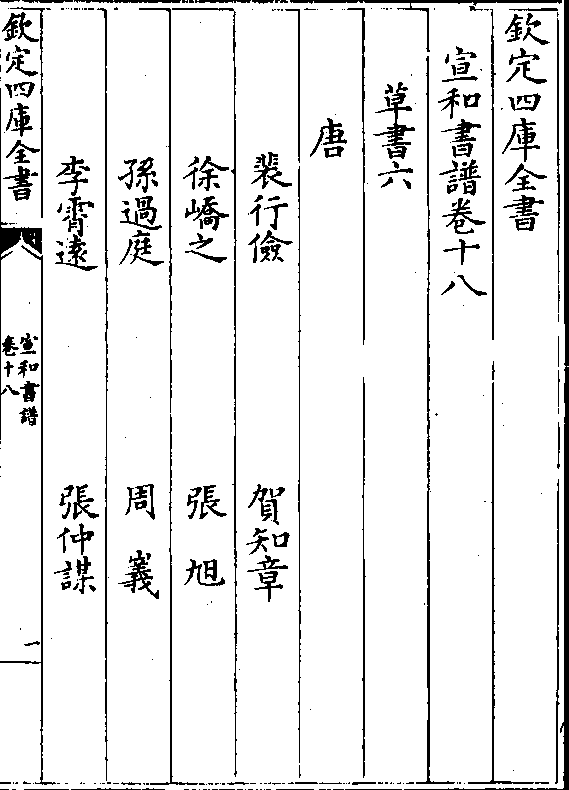 欽定四庫全書
宣和書譜卷十八
草書六
唐
裴行儉　賀知章
徐嶠之　張旭
孫過庭　周㠖
李霄遠　張仲謀
欽定四庫全書
宣和書譜
卷十八
一